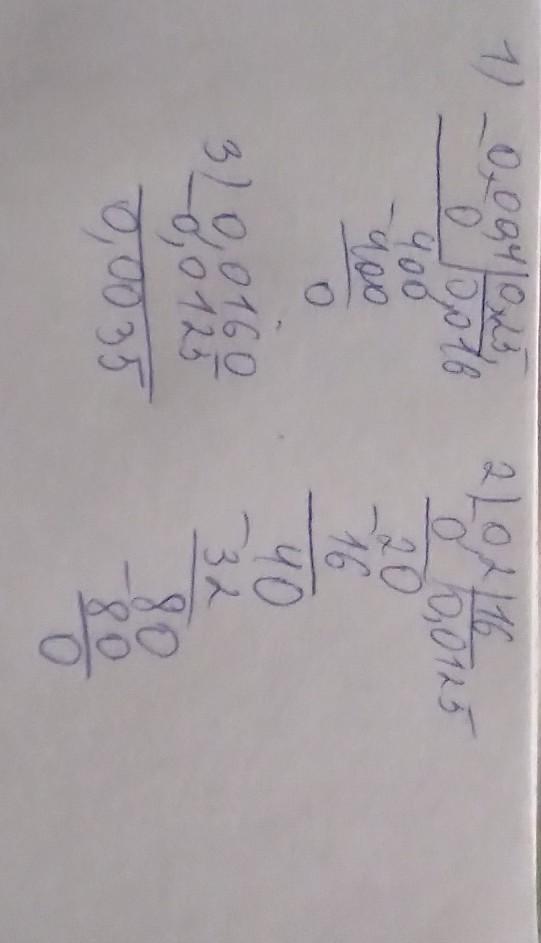 1) -0,00,4|0,25,
0 |0,016
400
-400
0
2) -0,2|16
0 |0,0125
-20
16
40
-32
-80
80
0
3) 0,0160
-0,0125
0,0035